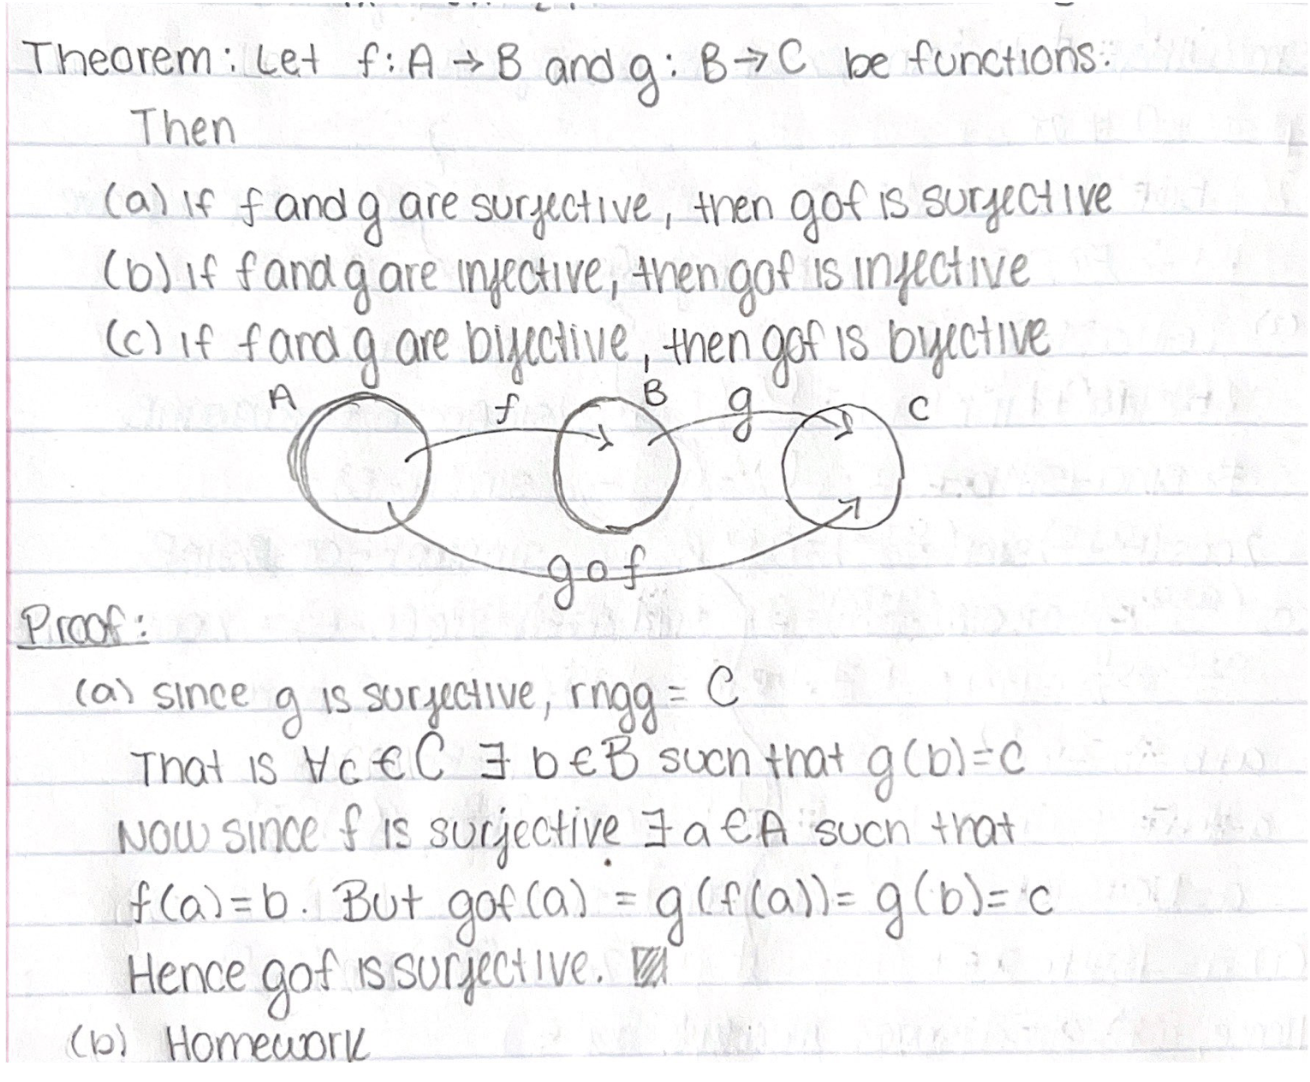 Theorem: Let f: A → B and g: B → C be functions.
Then
(a) if f and g are surjective, then gof is surjective
(b) if f and g are injective, then gof is injective
(c) if f and g are bijective, then gof is bijective
A f B g C
gof
Proof:
(a) since g is surjective, rngg = C
That is ∀c ∈ C ∃ b ∈ B such that g(b) = c
Now since f is surjective ∃ a ∈ A such that
f(a) = b. But gof(a) = g(f(a)) = g(b) = c
Hence gof is surjective.
(b) Homework